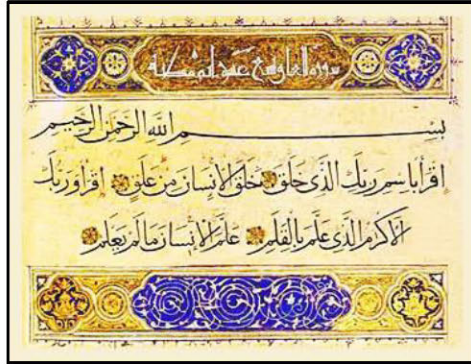 سورة العلق
بسم الله الرحمن الرحيم
اقرأ باسم ربك الذي خلق خلق الانسان من علق اقرأ وربك
الاكرم الذي علم بالقلم علم الانسان ما لم يعلم